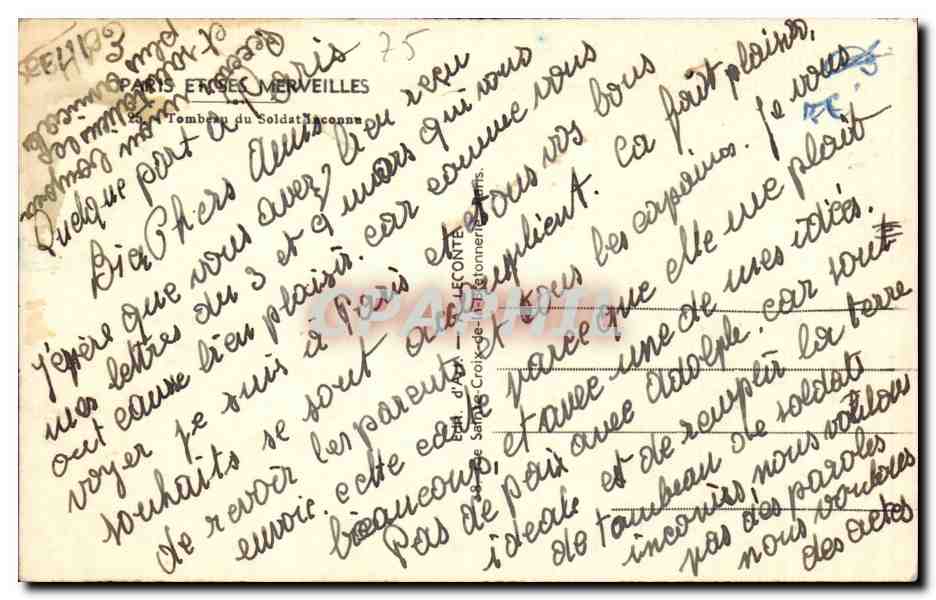 75
PARIS ET SES MERVEILLES
Tombeau du Soldat Inconnu
Quelque part à Paris
Chers amis
J'éspère que vous avez bien reçu
mes lettres du 3 et 9 mars qui vous
ont causé bien plaisir. car comme vous
voyer je suis à Paris et tous vos bons
souhaits se sont accomplient. Ca fait plaisir,
de revoir les parents et tous les copains. Je vous
envoie cette carte parce que elle me plait
beaucoup, et avec une de mes idées.
Pas de paix avec adolphe. car sont
ideale est de remplir la terre
de tombeau de soldats
inconnus nous voulons
pas des paroles
nous voulons
des actes
EDIT. d'Art. — LECONTE
38, Rue Sainte-Croix-de-la-Bretonnerie, Paris.
CPARAMA